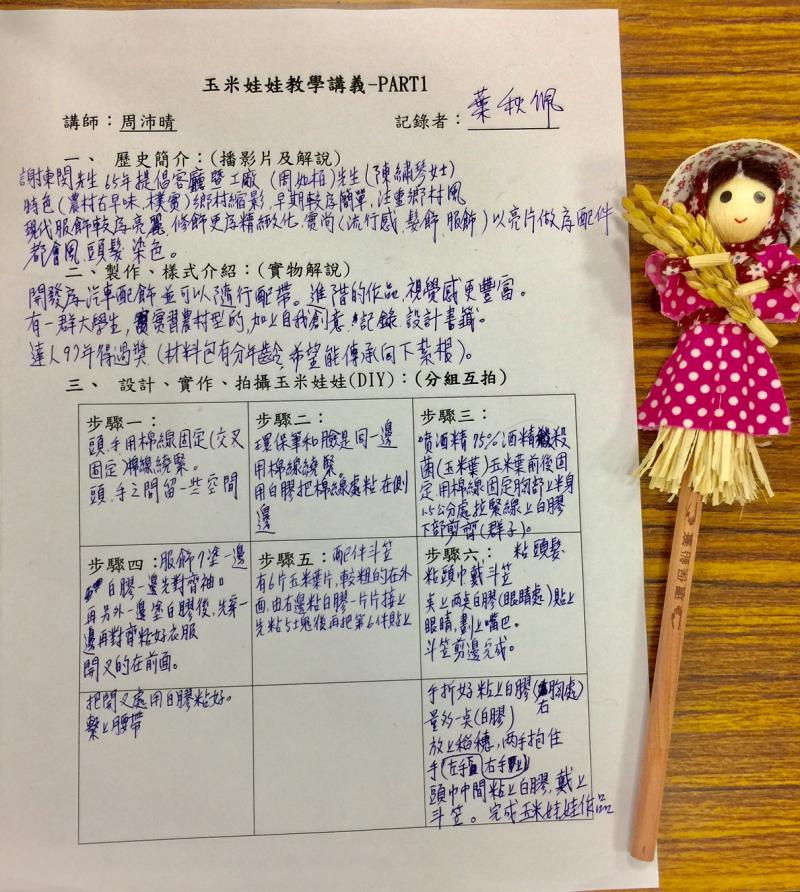 玉米娃娃教學講義-PART1
講師：周沛晴
記錄者：葉秋佩
一、 歷史簡介：(播影片及解說)
謝東閔先生65年提倡客廳暨工廠 (周姐栢)先生(陳繡琴女士)
特色(農村古早味 樸實)鄉村縮影，早期較為簡單，注重鄉村風
現代服飾較為亮麗 修飾更為精緻化，寶尚(流行感、髮飾、服飾)以亮片做為配件
都會風、頭髮染色。
二、製作、樣式介紹：(實物解說)
開發為汽車配飾並可以隨行配帶。進階的作品，視覺感更豐富。
有一群大學生，實習農村型的，加上自我創意，記錄，設計書籤。
達人97年得過獎 (材料包有分年齡，希望能傳承(向下紮根)。
三、 設計、實作、拍攝玉米娃娃(DIY)：(分組互拍)
步驟一：
頭、手用棉線固定(交叉
固定)棉線繞緊。
頭、手之間留一些空間
步驟二：
環保筆和臉是同一邊
用棉線繞緊。
用白膠把棉線處粘在側
邊
步驟三：
噴酒精75%酒精殺
菌(玉米葉)玉米葉前後固
定，用棉線固定胸部上半身
1.5公分處拉緊線上白膠
下部剪齊(群子)。
步驟四：服飾7塗一邊
白膠一邊先對齊袖。
再另外一邊塗白膠後，先穿一
邊再對齊粘好衣服
開叉的在前面。
步驟五：配件斗笠
有6片玉米葉片，較粗的在外
面，由右邊粘白膠一片片接上
先粘5塊後再把第6件貼上
步驟六：粘頭髮
粘頭巾戴斗笠
桌上兩桌白膠(眼睛處)貼上
眼睛，劃上嘴巴。
斗笠剪邊完成。
把開叉處用白膠粘好。
繫上腰帶
手折好粘上白膠(胸處)
右
量約一桌(白膠)
放上稻穗，兩手抱住
手(左手 右手上)
頭巾中間粘上白膠，戴上
斗笠。完成玉米娃娃作品
環保筆